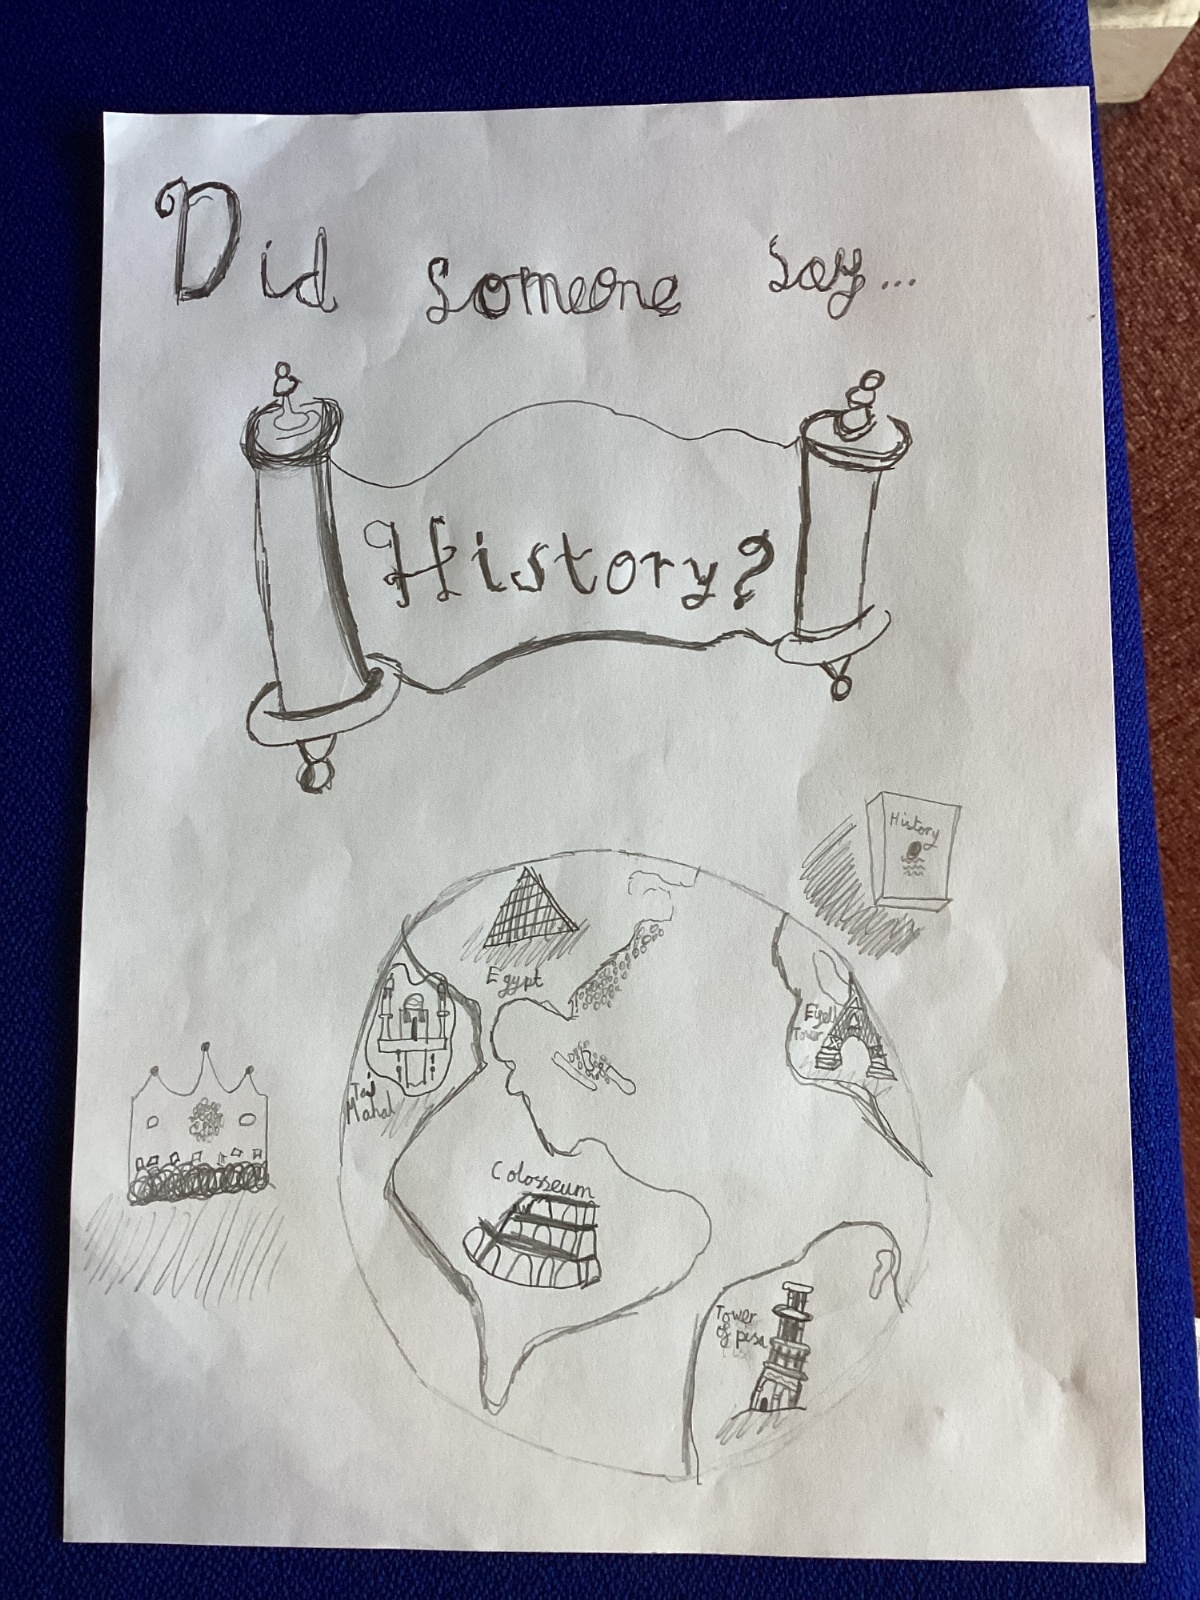 Did someone say...
History?
History
Egypt
Eiffel
Tower
Taj
Mahal
Colosseum
Tower
of pisa